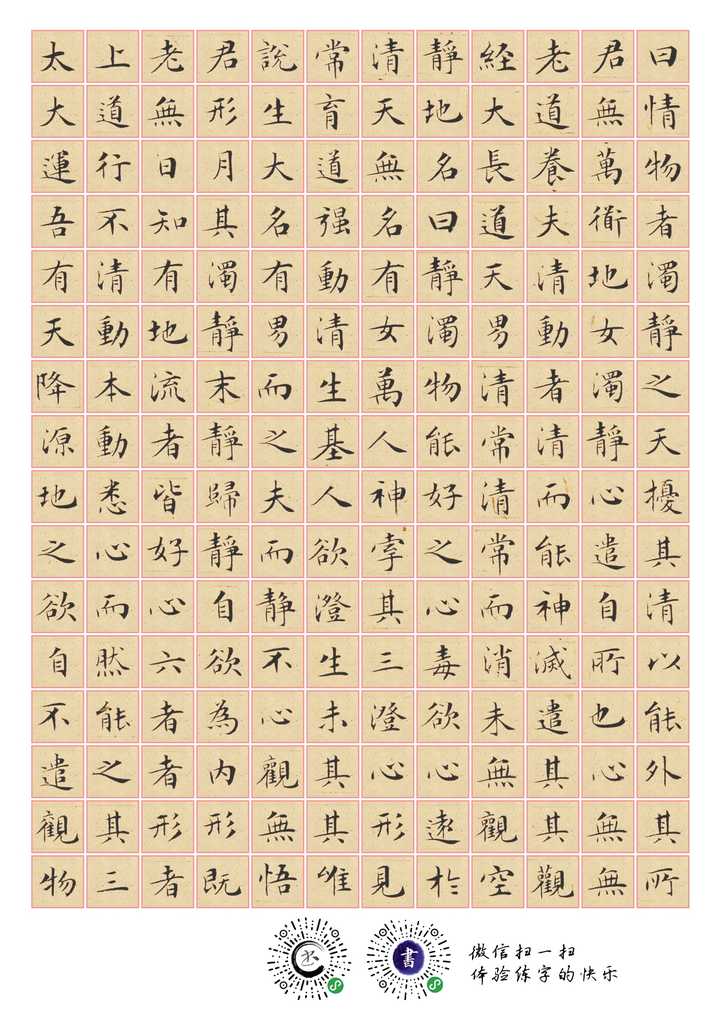 太上老君說常清靜経老君曰
大道無形生育天地大道無情
運行日月大道無名長養萬物
吾不知其名强名曰道夫衜者
有清有濁有動有靜天清地濁
天動地靜男清女濁男動女靜
降本流末而生萬物清者濁之
源動者靜之基人能常清靜天
地悉皆歸夫人神好清而心擾
之心好靜而欲牽之常能遣其
欲而心自静澄其心而神自清
自然六欲不生三毒消滅所以
不能者為心未澄欲未遣也能
遣之者内觀其心心無其心外
觀其形形無其形遠觀其無其
物三者既悟唯見於空觀無所
微信扫一扫
体验练字的快乐